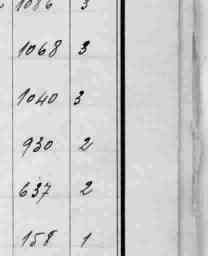 1086 3
1068 3
1040 3
930 2
637 2
158 1